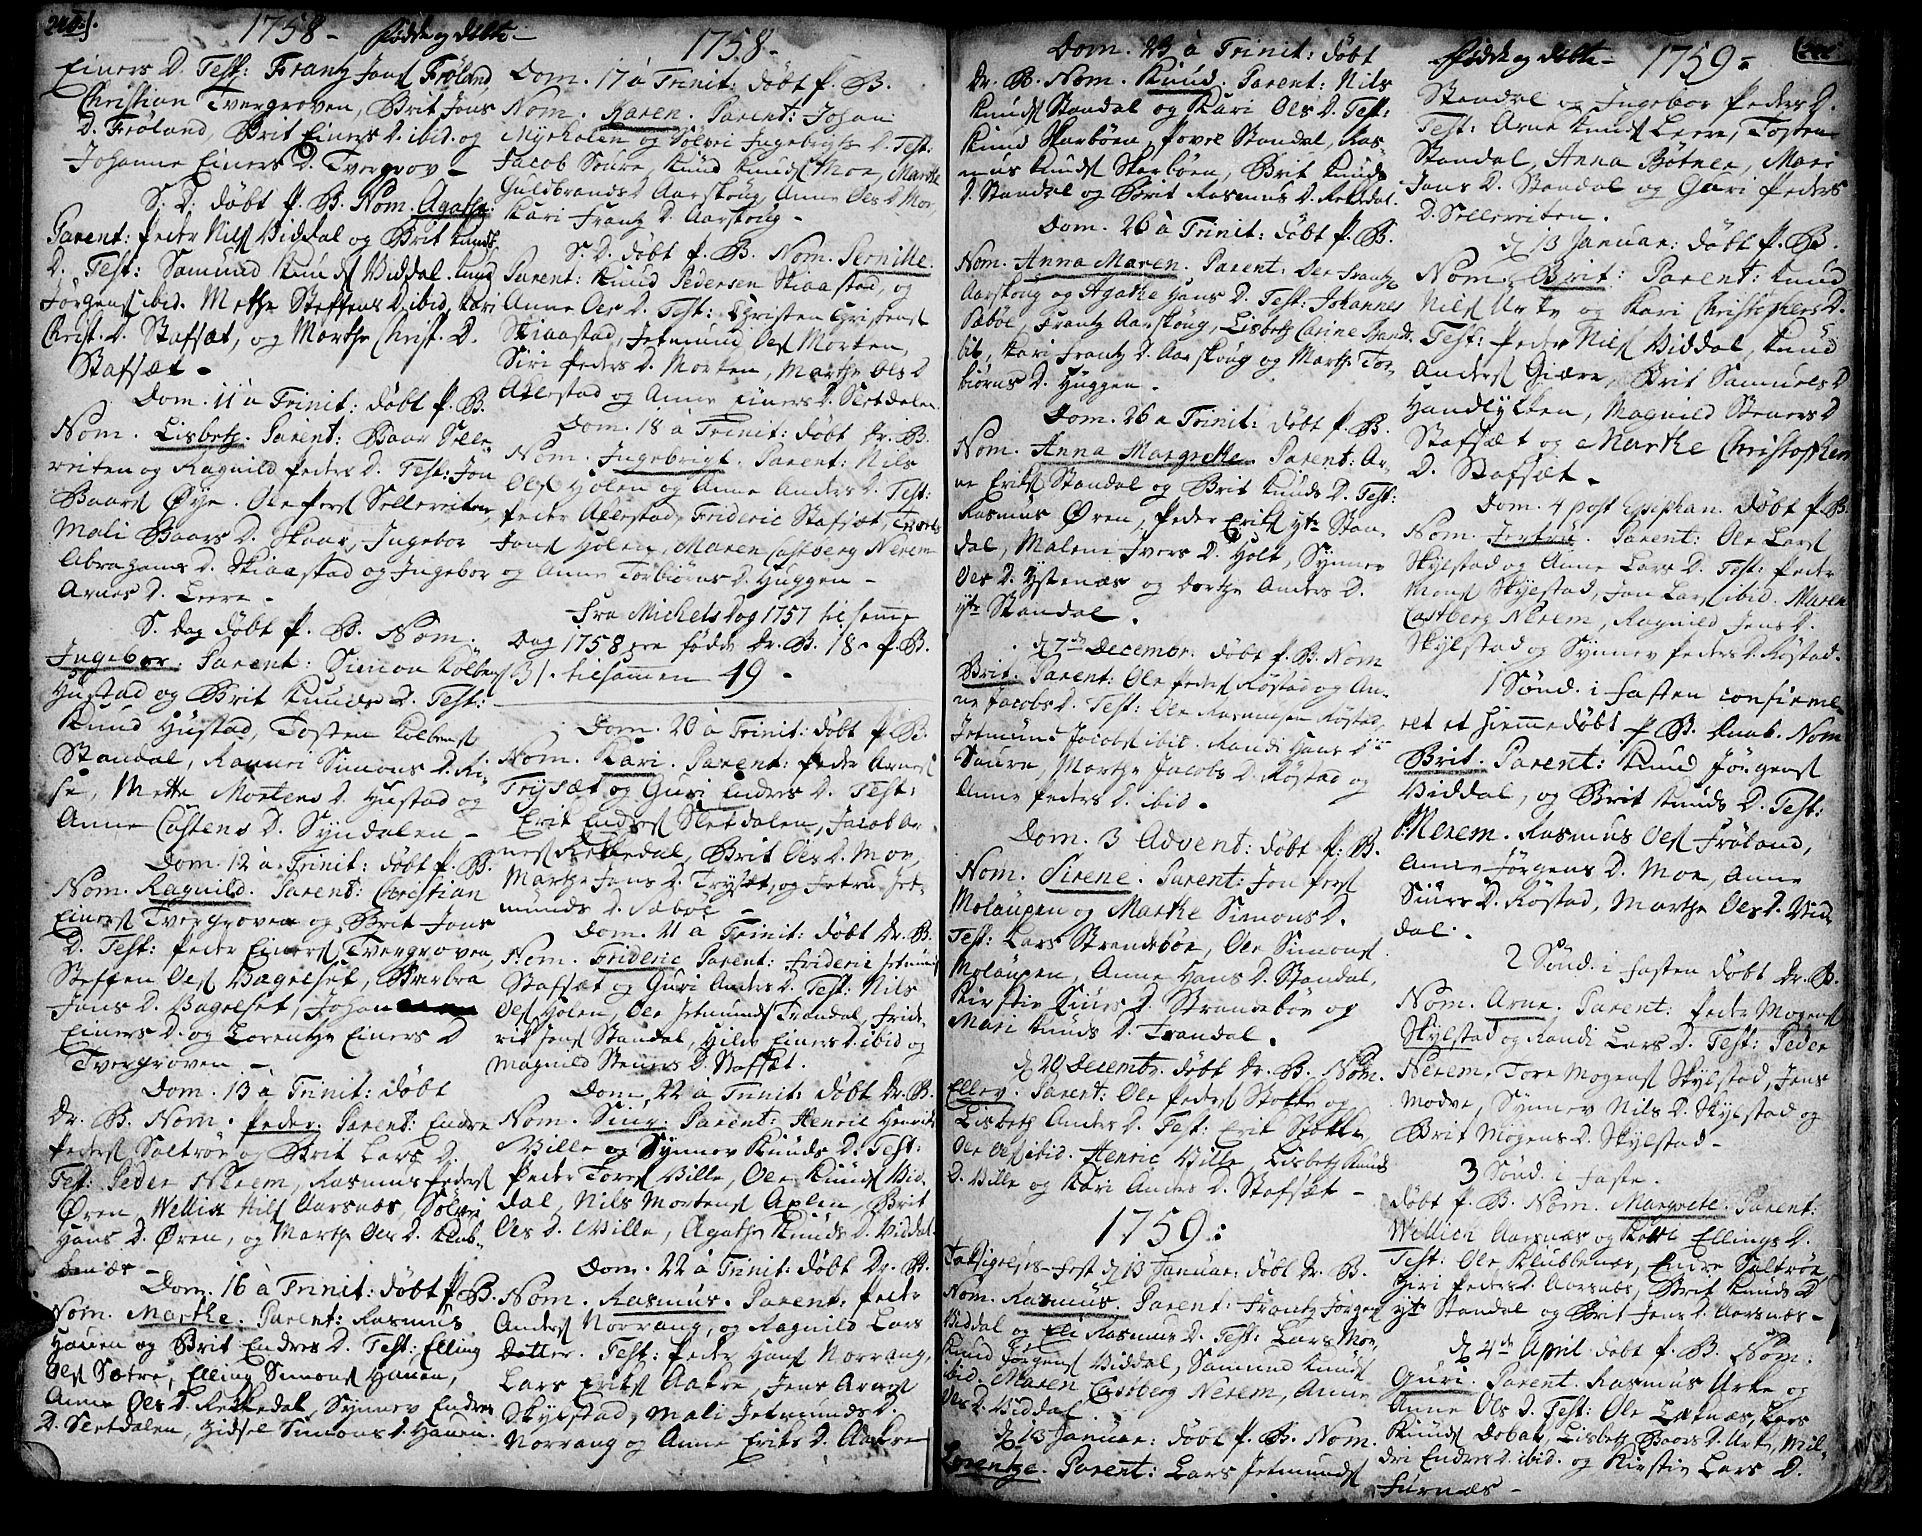 1758 - Fødde og døbte -
Einers D. Test: Frantz Jons Frøland,
Christian Tvergroven, Brit Jons
D. Frøland, Brit Einers D. ibid. og
Johanne Einers D. Tvergrov -
S. D. døbt P. B. Nom. Agathe.
Parent: Peder Nils Viddal og Brit Knuds
D. Test: Samund Knuds Viddal. Knud
Jørgens ibid. Methe Steffens D. ibid, Kari
Christ. D. Stafsæt, og Marthe Christ. D.
Stafsæt.
Dom. 11 à Trinit: døbt P. B.
Nom. Lisbeth. Parent: Baar Selle
vriten og Ragnild Peders D. Test: Jon
Baars Øye. Ole Pers Sellevriten,
Mali Baars D. Skaar, Ingebor
Abrahams D. Skiaastad og Ingebor
Arnes D. Leere.
S. Dag døbt P. B. Nom.
Ingebor. Parent: Simon Kolbens
Hustad og Brit Knuds D. Test:
Knud Hustad, Tosten Kolbens
Standal, Ranvei Simons D. Ri-
se, Mette Mortens D. Hustad og
Anne Castens D. Syndalen -
Dom. 12 à Trinit: døbt P. B.
Nom. Ragnild. Parent: Christian
Einers Tvergroven og Brit Jons
D. Test: Peder Einers Tvergroven,
Steffen Ols Bagelset, Barbra
Jons D. Bagelset, Johan
Einers D. og Lorentze Einers D
Tvergroven -
Dom. 13 à Trinit: døbt
Dr. B. Nom. Peder. Parent: Endre
Peders Saltrøe og Brit Lars D.
Test: Peder Nerem, Rasmus Peders
Øren, Wellik Nils Aarsnæs, Sølvi
Hans D. Øren, og Marthe Oles D. Klub-
benæs -
Dom. 16 à Trinit: døbt P. B.
Nom. Marthe. Parent: Rasmus
Hauen og Brit Endres D. Test: Elling
Ols Sætre, Elling Simons Hauen,
Anne Oles D. Rekkedal, Synnev Endres
D. Sletdalen, Zidsel Simons D. Hauen.
1758 -
Dom. 17 à Trinit: døbt P. B.
Nom. Karen. Parent: Johan
Myrholen og Sølvei Ingebrigts D. Test.
Jacob Saure, Knud Knuds Moe, Marthe
Guldbrands D. Aarskoug, Anne Oles D. Moe,
Kari Frantz D. Aarskoug -
S. D. døbt P. B. Nom. Pernille.
Parent: Knud Pedersen Skiaastad, og
Anne Oles D. Test: Christen Christens
Skiaastad, Jetmund Oles Morten,
Siri Peders D. Morten, Marthe Oles D
Alestad og Anne Einers D. Sletdalen.
Dom. 18 à Trinit: døbt Dr. B.
Nom. Ingebrigt. Parent: Nils
Ols Holen og Anne Anders D. Test:
Peder Alestad, Frideric Stafsæt, Troels
Jons Holen, Maren Castberg Nerem
og Anne Torbiørns D. Huggen -
Fra Michels Dag 1757 til samme
Dag 1758 ere fødde Dr. B. 18. P. B.
31. tilsammen 49 -
Dom. 20 à Trinit: døbt P. B.
Nom. Kari. Parent: Peder Arnes
Trysæt og Guri Enders D. Test:
Erik Endres Sletdalen, Jacob Ar-
nes Rekkedal, Brit Oles D. Moe,
Marthe Jons D. Trysæt, og Jetrue Jet-
munds D. Sæbøe -
Dom. 21 à Trinit: døbt Dr. B.
Nom. Frideric Parent: Frideric Jetmunds
Stafsæt og Guri Anders D. Test: Nils
Ols Holen, Ole Jetmunds Trandal, Fride-
rik Jons Standal, Hilev Einers D. ibid og
Magnild Steners D. Stafsæt.
Dom. 22 à Trinit: døbt Dr. B.
Nom. Siur. Parent: Henric Henriks
Ville og Synnev Knuds D. Test:
Peder Tores Ville, Ole Knuds Vid-
dal, Nils Mortens Aplen, Brit
Oles D. Ville, Agathe Knuds D. Viddal
Dom. 22 à Trinit: døbt Dr. B.
Nom. Rasmus. Parent: Peder
Anders Norrang, og Ragnild Lars
Dotter. Test: Peder Hans Norrang,
Lars Eriks Aakre, Jens Arnes
Skylstad, Mali Jetmunds D.
Norrang og Anne Eriks D. Aakre
Dom. 23 à Trinit: døbt
Dr. B. Nom. Knud. Parent: Nils
Knuds Standal og Kari Oles D. Test:
Knud Skarbøen, Povel Standal, Ras-
mus Knuds Skarbøen, Brit Knuds
D. Standal og Brit Rasmus D. Rekkedal.
Dom. 26 à Trinit: døbt P. B.
Nom. Anna Maren. Parent: Ole Frantz
Aarskoug og Agathe Hans D. Test: Johannes
Sæbøe, Frantz Aarskoug, Lisbeth Carine
Kari Frantz D. Aarskoug og Marthe Tor-
biørns D. Huggen.
Dom. 26 à Trinit: døbt P. B.
Nom. Anna Margrethe. Parent: Ar-
ne Eriks Standal og Brit Knuds D. Test:
Rasmus Øren, Peder Eriks yt Stan-
dal, Malene Ivers D. Holt, Synnev
Oles D. Ystenæs og Dorthe Anders D.
yt Standal.
D. 7de Decembr. døbt P. B. Nom
Brit. Parent: Ole Peders Røstad og An-
ne Jacobs D. Test: Ole Rasmusen Røstad,
Jetmund Jacobs ibid. Randi Hans D
Saure, Marthe Jacobs D. Røstad og
Anne Peders D. ibid.
Dom. 3 Advent: døbt P. B.
Nom. Sirene. Parent: Jon Pers
Molaupen og Marthe Simons D.
Test: Lars Strandebøe, Ole Simons
Molaupen, Anne Hans D. Standal,
Kirstie Siurs D. Strandebøe og
Mari Knuds D. Trandal.
D. 20 Decembr. døbt Dr. B. Nom.
Ellev. Parent: Ole Peders Støkke og
Lisbeth Anders D. Test: Erik Støkke,
Ole Ols ibid. Henric Ville, Lisbeth Knuds
D. Ville og Kari Anders D. Stafsæt -
1759:
Taksigelses-Fest d. 13 Januar: døbt Dr. B.
Nom. Rasmus. Parent: Frantz Jørgens
Viddal og Eli Rasmus D. Test: Lars Moe,
Knud Jørgens Viddal, Samund Knuds
ibid. Maren Castberg Nerem, Anne
Oles D. Viddal
D. 13 Januar: døbt P. B. Nom.
Lorentze. Parent: Lars Jetmunds
Fødde og døbte - 1759 -
Standal og Ingebor Peders D.
Test: Arne Knuds Leere, Tosten
Standal, Anna Bøtner, Mari
Jons D. Standal og Guri Peders
D. Sellevriten.
D. 13 Januar: døbt P. B.
Nom. Brit: Parent: Knud
Nils Urke og Kari Christophers D.
Test: Peder Nils Viddal, Knud
Anders Giære, Brit Samuels D
Handlykken, Magnild Steners D
Stafsæt og Marthe Christophers
D. Stafsæt.
Dom. 4 post Epiphan. døbt P. B.
Nom. Jertrue. Parent: Ole Lars
Skylstad og Anne Lars D. Test: Peder
Mons Skylstad, Jon Lars ibid. Maren
Castberg Nerem, Ragnild Jens D.
Skylstad og Synnev Peders D. Røstad.
1 Sønd. i Fasten confirme-
ret et hiemmedøbt P. B. Knab. Nom
Brit. Parent: Knud Jørgens
Viddal, og Brit Knuds D. Test:
P. Nerem. Rasmus Ols Frøland,
Anne Jørgens D. Moe, Anne
Siurs D. Røstad, Marthe Oles D. Vid-
dal.
2 Sønd. i Fasten døbt Dr. B.
Nom. Arne. Parent: Peder Mogens
Skylstad og Randi Lars D. Test: Peder
Nerem. Tore Mogens Skylstad, Jens
Modve, Synnev Nils D. Skylstad og
Brit Mogens D. Skylstad -
3 Sønd. i Faste.
døbt P. B. Nom. Margrete. Parent:
Wellich Aarsnæs og Ellings D.
Test: Ole Klubbenæs, Endre Saltrøe,
Giri Peders D. Aarsnæs, Brit Knuds D
yt Standal og Brit Jens D. Aarsnæs -
D. 4de April døbt P. B. Nom.
Guri. Parent. Rasmus Urke og
Anne Ols D. Test: Ole Leknæs, Lars
Knuds Lisbeth Baars D. Urke, Mil-
dri Endres D. ibid. og Kirstie Lars D.
Furnæs -